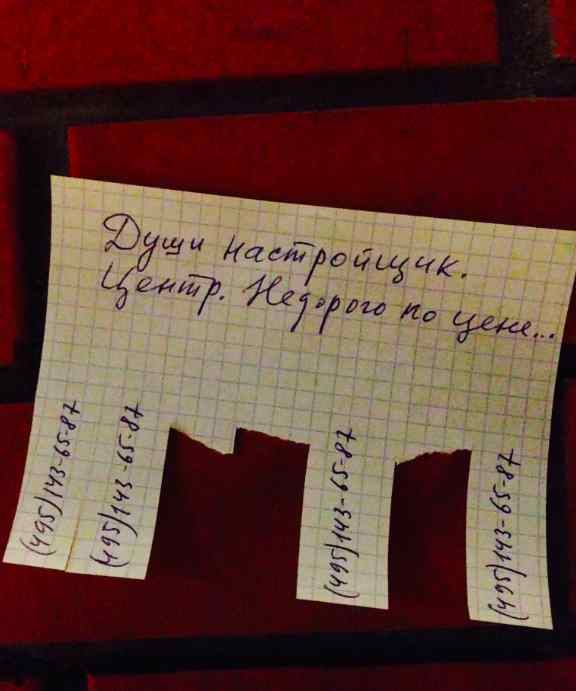 Души настройщик.
Центр. Недорого по цене...
(495)143-65-87
(495)143-65-87
(495)143-65-87
(495)143-65-87